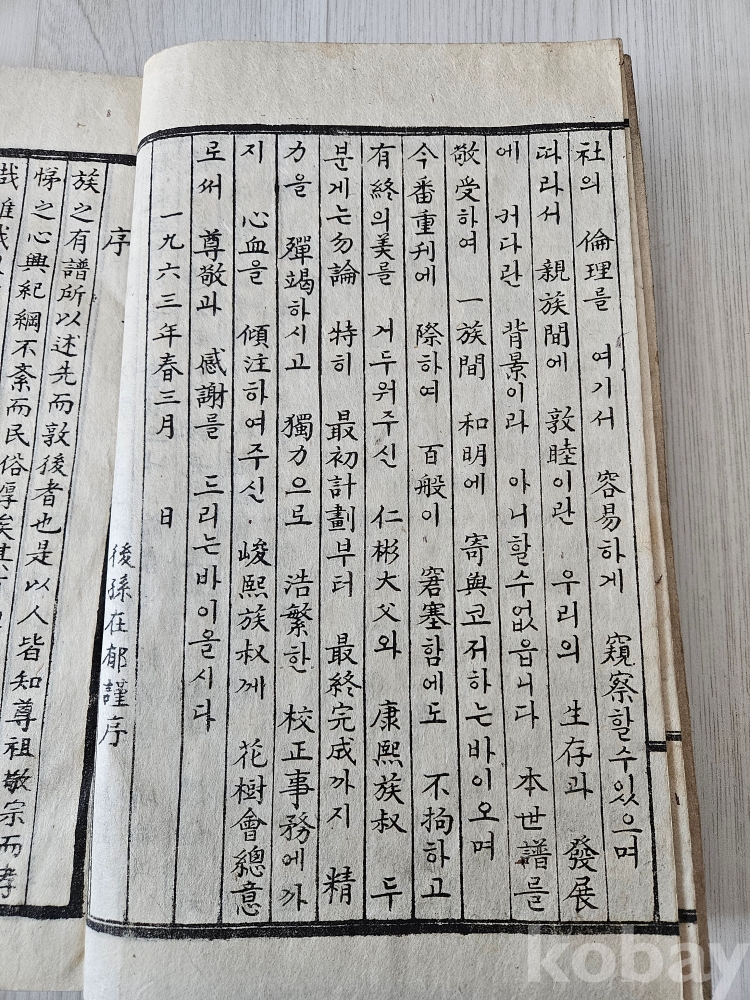 社의 倫理를 여기서 容易하게 窺察할수있으며
따라서 親族間에 敦睦이란 우리의 生存과 發展
에 커다란 背景이라 아니할수없읍니다 本世譜를
敬受하여 一族間 和明에 寄與코저하는바이오며
今番重刊에 際하여 百般이 窘塞함에도 不拘하고
有終의美를 거두워주신 仁彬大父와 康熙族叔 두
분게는勿論 特히 最初計劃부터 最終完成까지 精
力을 殫竭하시고 獨力으로 浩繁한 校正事務에까
지 心血을 傾注하여주신 峻熙族叔게 花樹會總意
로써 尊敬과 感謝를 드리는바이올시다
一九六三年春三月 日
後孫在郁謹序
序
族之有譜所以述先而敦後者也是以人皆知尊祖敬宗而孝
悌之心興紀綱不紊而民俗厚矣
kobay